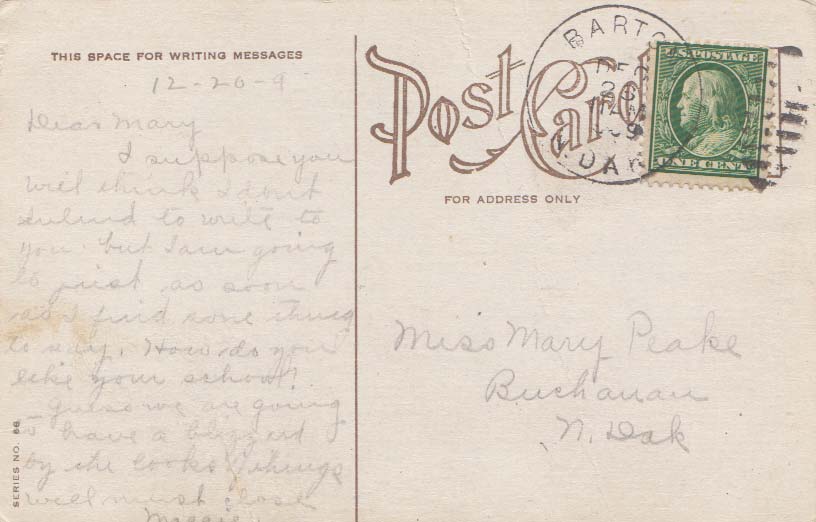 THIS SPACE FOR WRITING MESSAGES
12-20-9
Dear Mary
I suppose you
will think I dont
intend to write to
you but I am going
to just as soon
as I find some thing
to say. How do you
like your school?
Guess we are going
to have a blizzard
by the looks of things
will must close
Maggie
SERIES NO. 68
Post Card
BARTO
DE
9
N. DAK
U.S. POSTAGE
ONE CENT
FOR ADDRESS ONLY
Miss Mary Peake
Buchanan
N. Dak